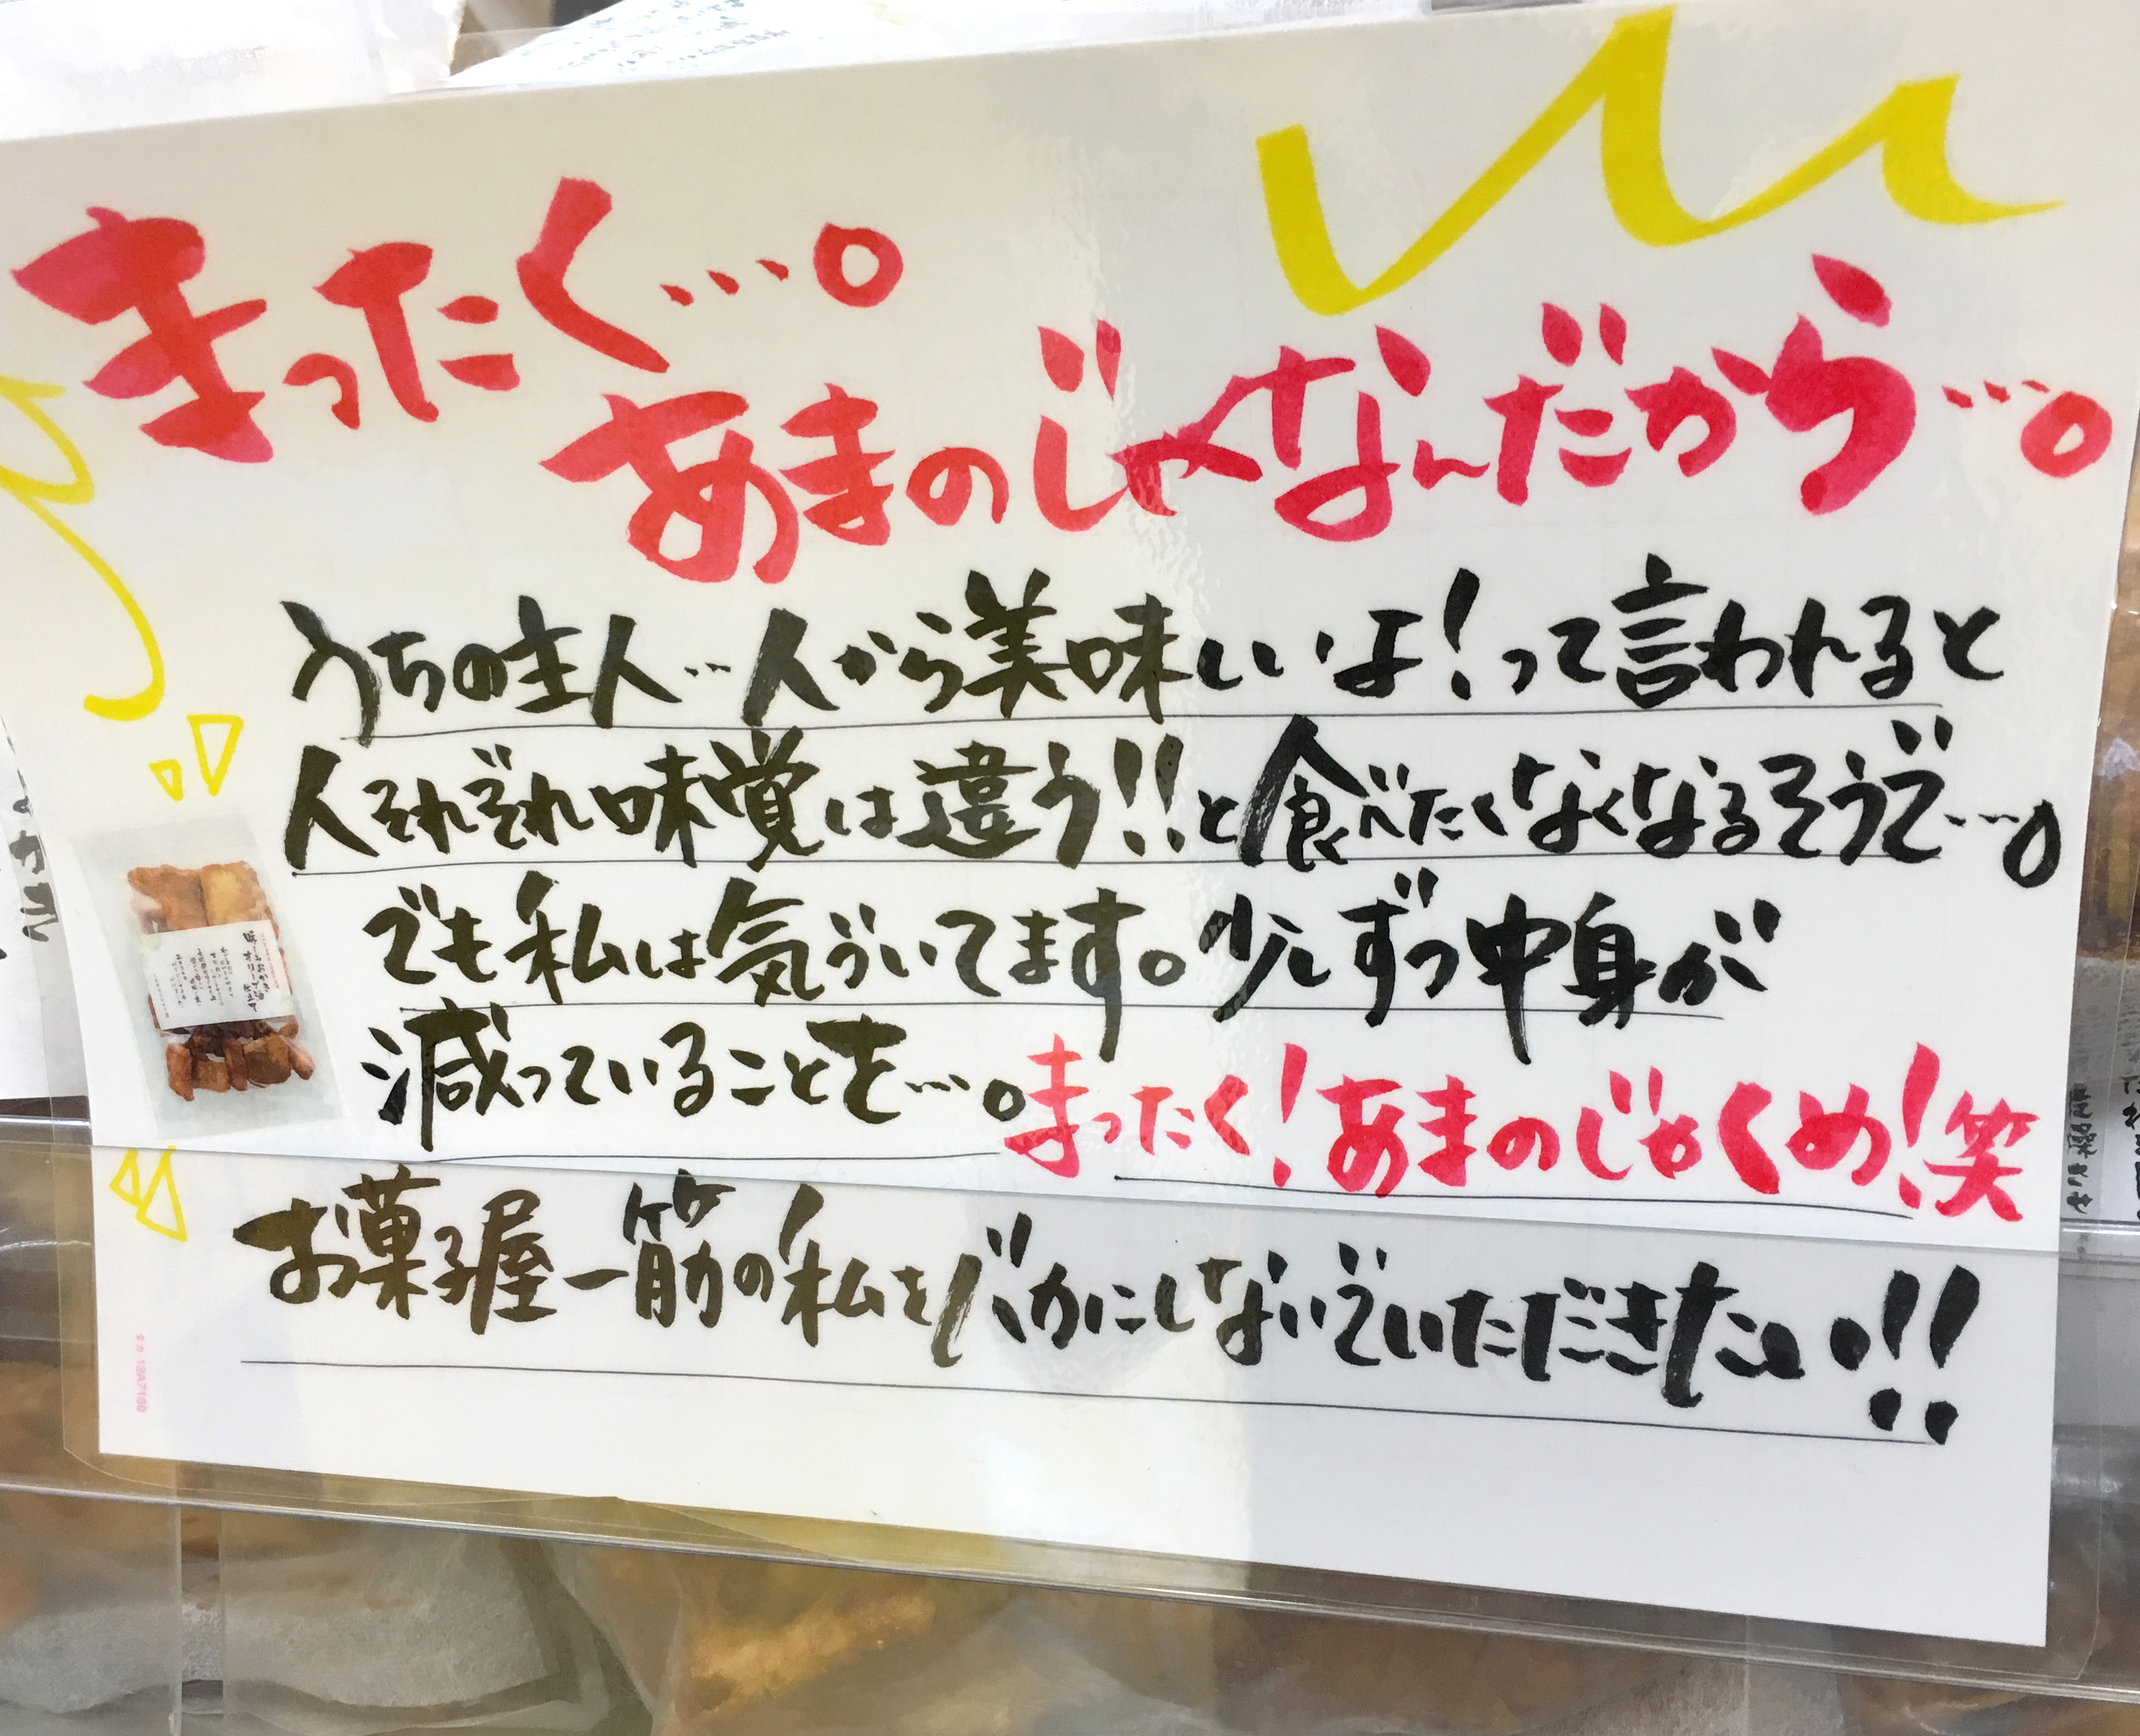 まったく…。
あまのじゃなんだから…。
うちの主人…人から美味しいよ!って言われると
人それぞれ味覚は違う!!と食べたくなくなるそうで…。
でも私は気づいてます。少しずつ中身が
減っていることを…。まったく!あまのじゃくめ!笑
お菓子屋一筋の私をバカにしないでいただきたい!!